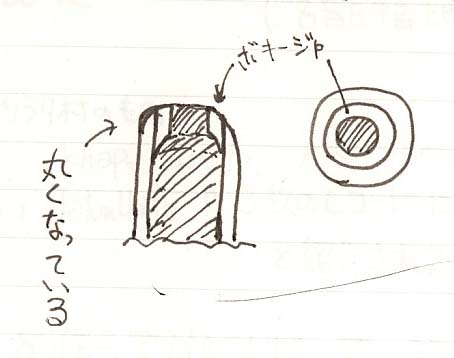 ボキージp
丸くなっている